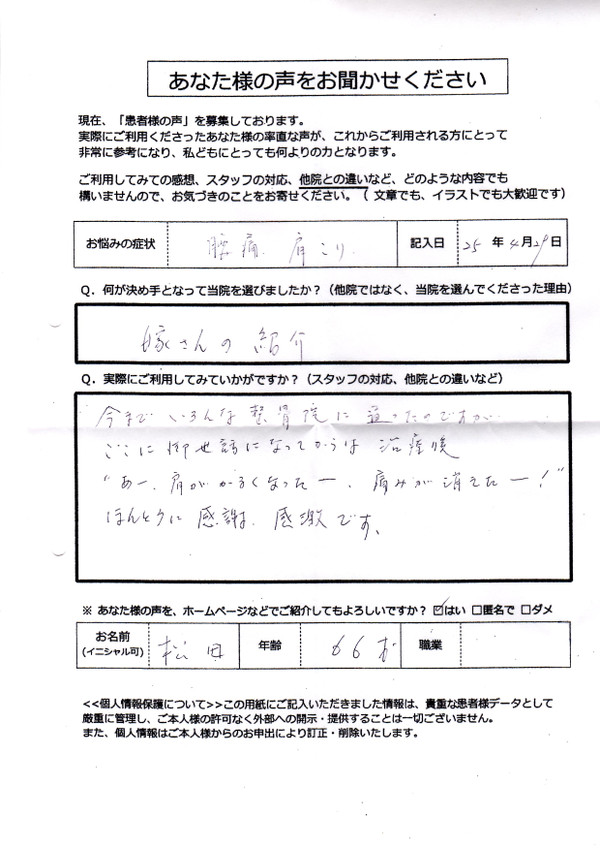 あなた様の声をお聞かせください
現在、「患者様の声」を募集しております。
実際にご利用くださったあなた様の率直な声が、これからご利用される方にとって
非常に参考になり、私どもにとっても何よりの力となります。
ご利用してみての感想、スタッフの対応、他院との違いなど、どのような内容でも
構いませんので、お気づきのことをお寄せください。（文章でも、イラストでも大歓迎です）
お悩みの症状 腰痛 肩こり 記入日 25年4月29日
Q．何が決め手となって当院を選びましたか？（他院ではなく、当院を選んでくださった理由）
嫁さんの紹介
Q．実際にご利用してみていかがですか？（スタッフの対応、他院との違いなど）
今までいろんな整骨院に通ったのですが
ここに御世話になってからは治療後
"あー、肩がかるくなったー、痛みが消えたー！"
ほんとうに感謝、感激です、
※ あなた様の声を、ホームページなどでご紹介してもよろしいですか？ ☑はい □匿名で □ダメ
お名前 (イニシャル可) 松田 年齢 66才 職業
<<個人情報保護について>>この用紙にご記入いただきました情報は、貴重な患者様データとして
厳重に管理し、ご本人様の許可なく外部への開示・提供することは一切ございません。
また、個人情報はご本人様からのお申出により訂正・削除いたします。